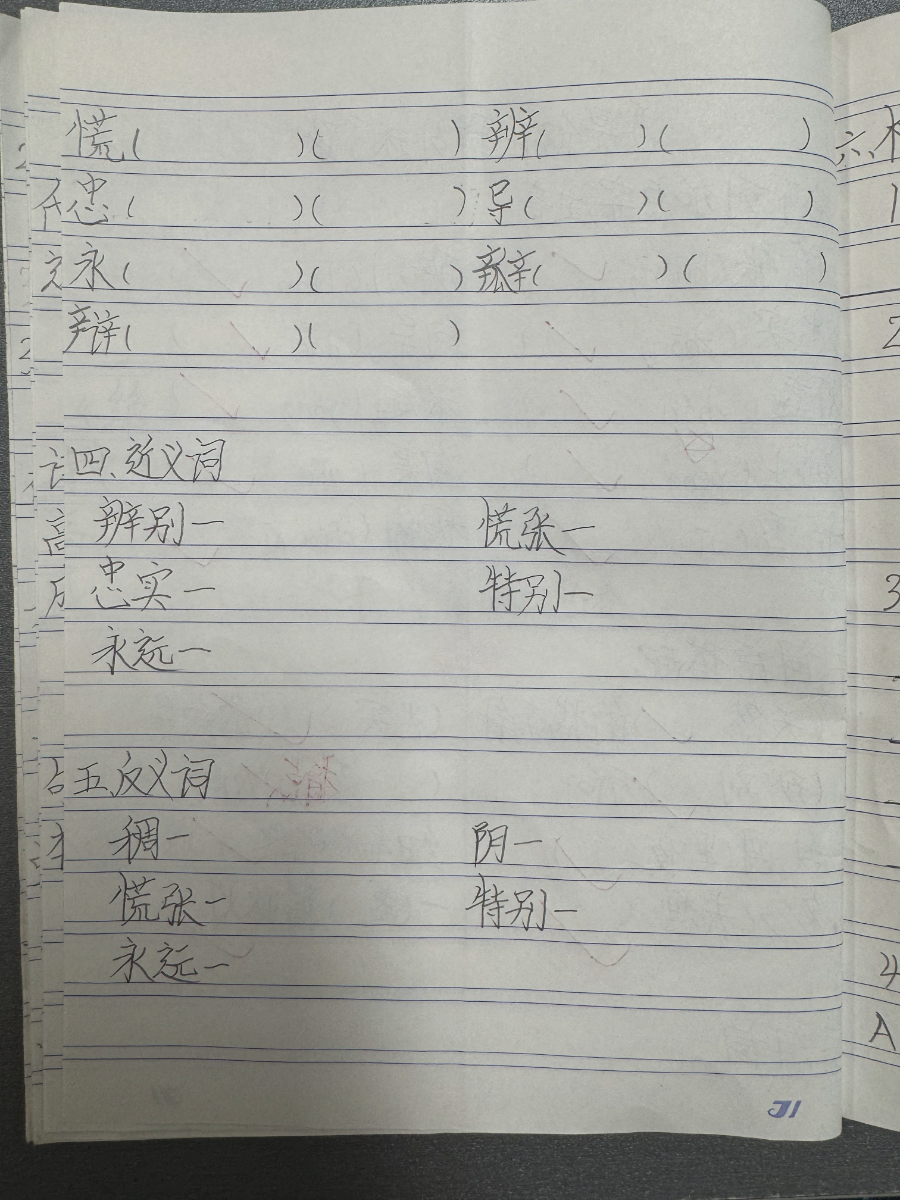 慌(　　)(　　) 辨(　　)(　　)
忠(　　)(　　) 导(　　)(　　)
永(　　)(　　) 瓣(　　)(　　)
辩(　　)(　　)
四、近义词
辨别— 慌张—
忠实— 特别—
永远—
五、反义词
稠— 阴—
慌张— 特别—
永远—
31
六、
1
2
3
4
A